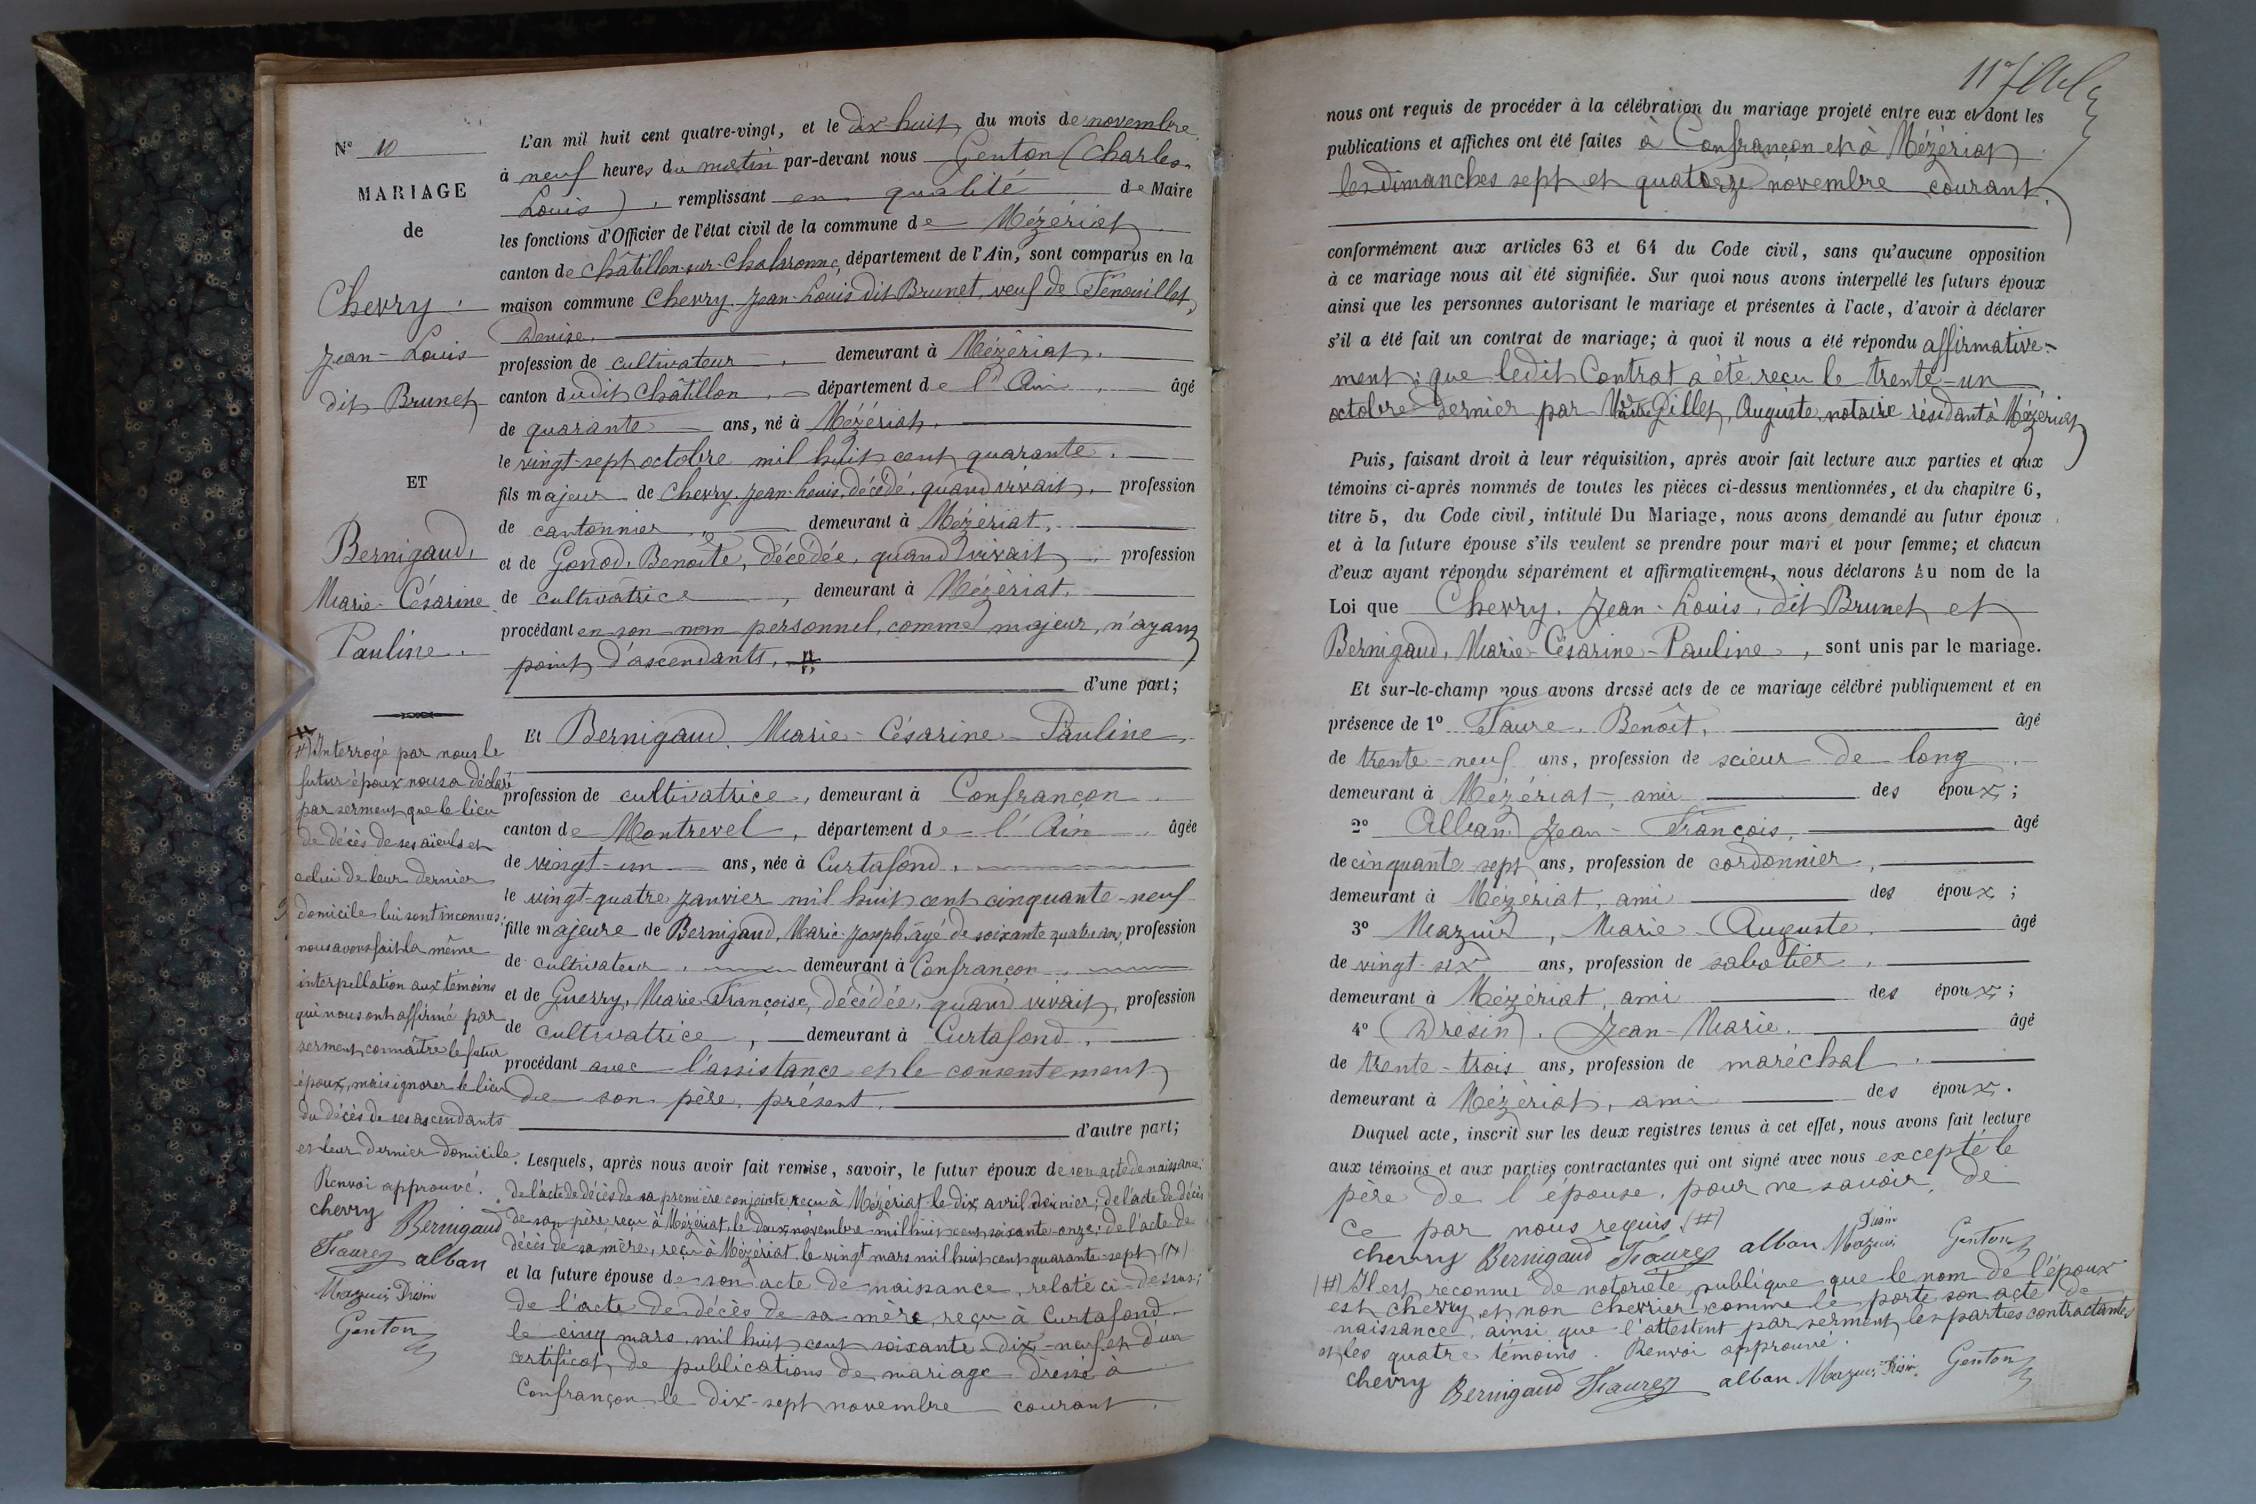 N° 10
MARIAGE
de
Chevry
Jean-Louis
dit Brunet
ET
Bernigaud,
Marie-Césarine
Pauline.
L'an mil huit cent quatre-vingt, et le dix huit du mois de novembre
à neuf heures du matin par-devant nous Genton (Charles-
Louis), remplissant en qualité de Maire
les fonctions d'Officier de l'état civil de la commune de Mézériat
canton de Châtillon-sur-Chalaronne, département de l'Ain, sont comparus en la
maison commune Chevry Jean-Louis dit Brunet, veuf de Fenouillet,
Denise,
profession de cultivateur, demeurant à Mézériat,
canton dudit Châtillon, département de l'Ain, âgé
de quarante ans, né à Mézériat,
le vingt-sept octobre mil huit cent quarante.
fils majeur de Chevry Jean-Louis, décédé, quand vivait, profession
de cantonnier, demeurant à Mézériat,
et de Gonod, Benoîte, décédée, quand vivait, profession
de cultivatrice, demeurant à Mézériat,
procédant en son nom personnel, comme majeur, n'ayant
point d'ascendants, #
d'une part;
Et Bernigaud, Marie-Césarine-Pauline,
profession de cultivatrice, demeurant à Confrançon
canton de Montrevel, département de l'Ain, âgée
de vingt-un ans, née à Curtafond,
le vingt-quatre janvier mil huit cent cinquante-neuf
fille majeure de Bernigaud, Marie-Joseph, âgé de soixante quatre ans, profession
de cultivateur, demeurant à Confrançon,
et de Guerry, Marie-Françoise, décédée, quand vivait, profession
de cultivatrice, demeurant à Curtafond,
procédant avec l'assistance et le consentement
de son père, présent.
d'autre part;
Lesquels, après nous avoir fait remise, savoir, le futur époux de son acte de naissance;
de l'acte de décès de sa première conjointe, reçu à Mézériat le dix avril dernier; de l'acte de décès
de son père, reçu à Mézériat, le deux novembre mil huit cent soixante-onze; de l'acte de
décès de sa mère, reçu à Mézériat le vingt mars mil huit cent quarante-sept (#)
et la future épouse de son acte de naissance, relaté ci-dessus;
de l'acte de décès de sa mère, reçu à Curtafond
le cinq mars, mil huit cent soixante dix-neuf et d'un
certificat de publications de mariage dressé à
Confrançon le dix-sept novembre courant.
(#) Interrogé par nous le
futur époux nous a déclaré
par serment que le lieu
de décès de ses aïeuls et
celui de leur dernier
domicile lui sont inconnus;
nous avons fait la même
interpellation aux témoins
qui nous ont affirmé par
serment, connaître le futur
époux, mais ignorer le lieu
du décès de ses ascendants
et leur dernier domicile.
Renvoi approuvé.
chevry Bernigaud
Faure alban
Mazuir Drésin
Genton
nous ont requis de procéder à la célébration du mariage projeté entre eux et dont les
publications et affiches ont été faites à Confrançon et à Mézériat
les dimanches sept et quatorze novembre courant.
conformément aux articles 63 et 64 du Code civil, sans qu'aucune opposition
à ce mariage nous ait été signifiée. Sur quoi nous avons interpellé les futurs époux
ainsi que les personnes autorisant le mariage et présentes à l'acte, d'avoir à déclarer
s'il a été fait un contrat de mariage; à quoi il nous a été répondu affirmative-
ment; que ledit Contrat a été reçu le trente-un
octobre dernier par Gillet, Auguste, notaire résidant à Mézériat
Puis, faisant droit à leur réquisition, après avoir fait lecture aux parties et aux
témoins ci-après nommés de toutes les pièces ci-dessus mentionnées, et du chapitre 6,
titre 5, du Code civil, intitulé Du Mariage, nous avons demandé au futur époux
et à la future épouse s'ils veulent se prendre pour mari et pour femme; et chacun
d'eux ayant répondu séparément et affirmativement, nous déclarons Au nom de la
Loi que Chevry, Jean-Louis, dit Brunet et
Bernigaud, Marie-Césarine-Pauline, sont unis par le mariage.
Et sur-le-champ nous avons dressé acte de ce mariage célébré publiquement et en
présence de 1° Faure, Benoît, âgé
de trente-neuf ans, profession de scieur de long
demeurant à Mézériat, ami des époux;
2° Alban Jean-François, âgé
de cinquante sept ans, profession de cordonnier,
demeurant à Mézériat, ami des époux;
3° Mazuir, Marie-Auguste âgé
de vingt-six ans, profession de sabotier,
demeurant à Mézériat, ami des époux;
4° Drésin, Jean-Marie. âgé
de trente-trois ans, profession de maréchal
demeurant à Mézériat, ami des époux.
Duquel acte, inscrit sur les deux registres tenus à cet effet, nous avons fait lecture
aux témoins et aux parties contractantes qui ont signé avec nous excepté le
père de l'épouse, pour ne savoir, de
ce par nous requis. (#)
chevry Bernigaud Faure alban Mazuir Drésin Genton
(#) Il est reconnu de notoriété publique que le nom de l'époux
est chevry et non chevrier comme le porte son acte de
naissance, ainsi que l'attestent par serment, les parties contractantes
et les quatre témoins. Renvoi approuvé.
chevry Bernigaud Faure alban Mazuir Drésin Genton